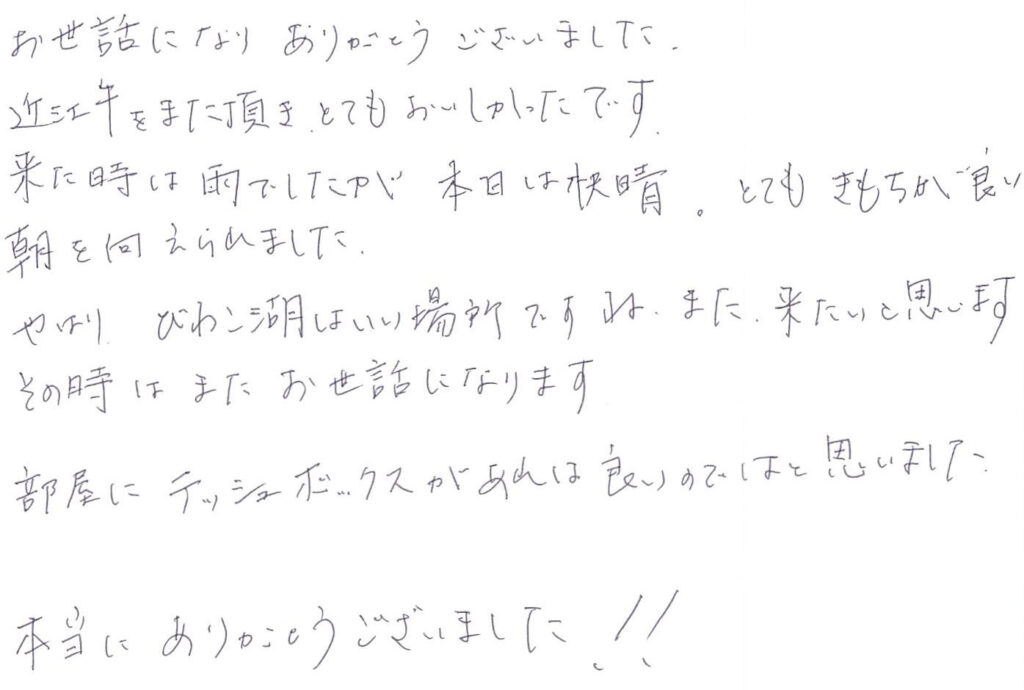 お世話になり ありがとう ございました.
近江牛をまた頂き、とても おいしかったです.
来た時は 雨でしたが 本日は快晴。とても きもちが良い
朝を向えられました.
やはり びわこ湖はいい場所ですね. また、来たいと思います
その時は また お世話になります
部屋に テッシュボックスがあれば 良いのではと 思いました.
本当に ありがとうございました !!